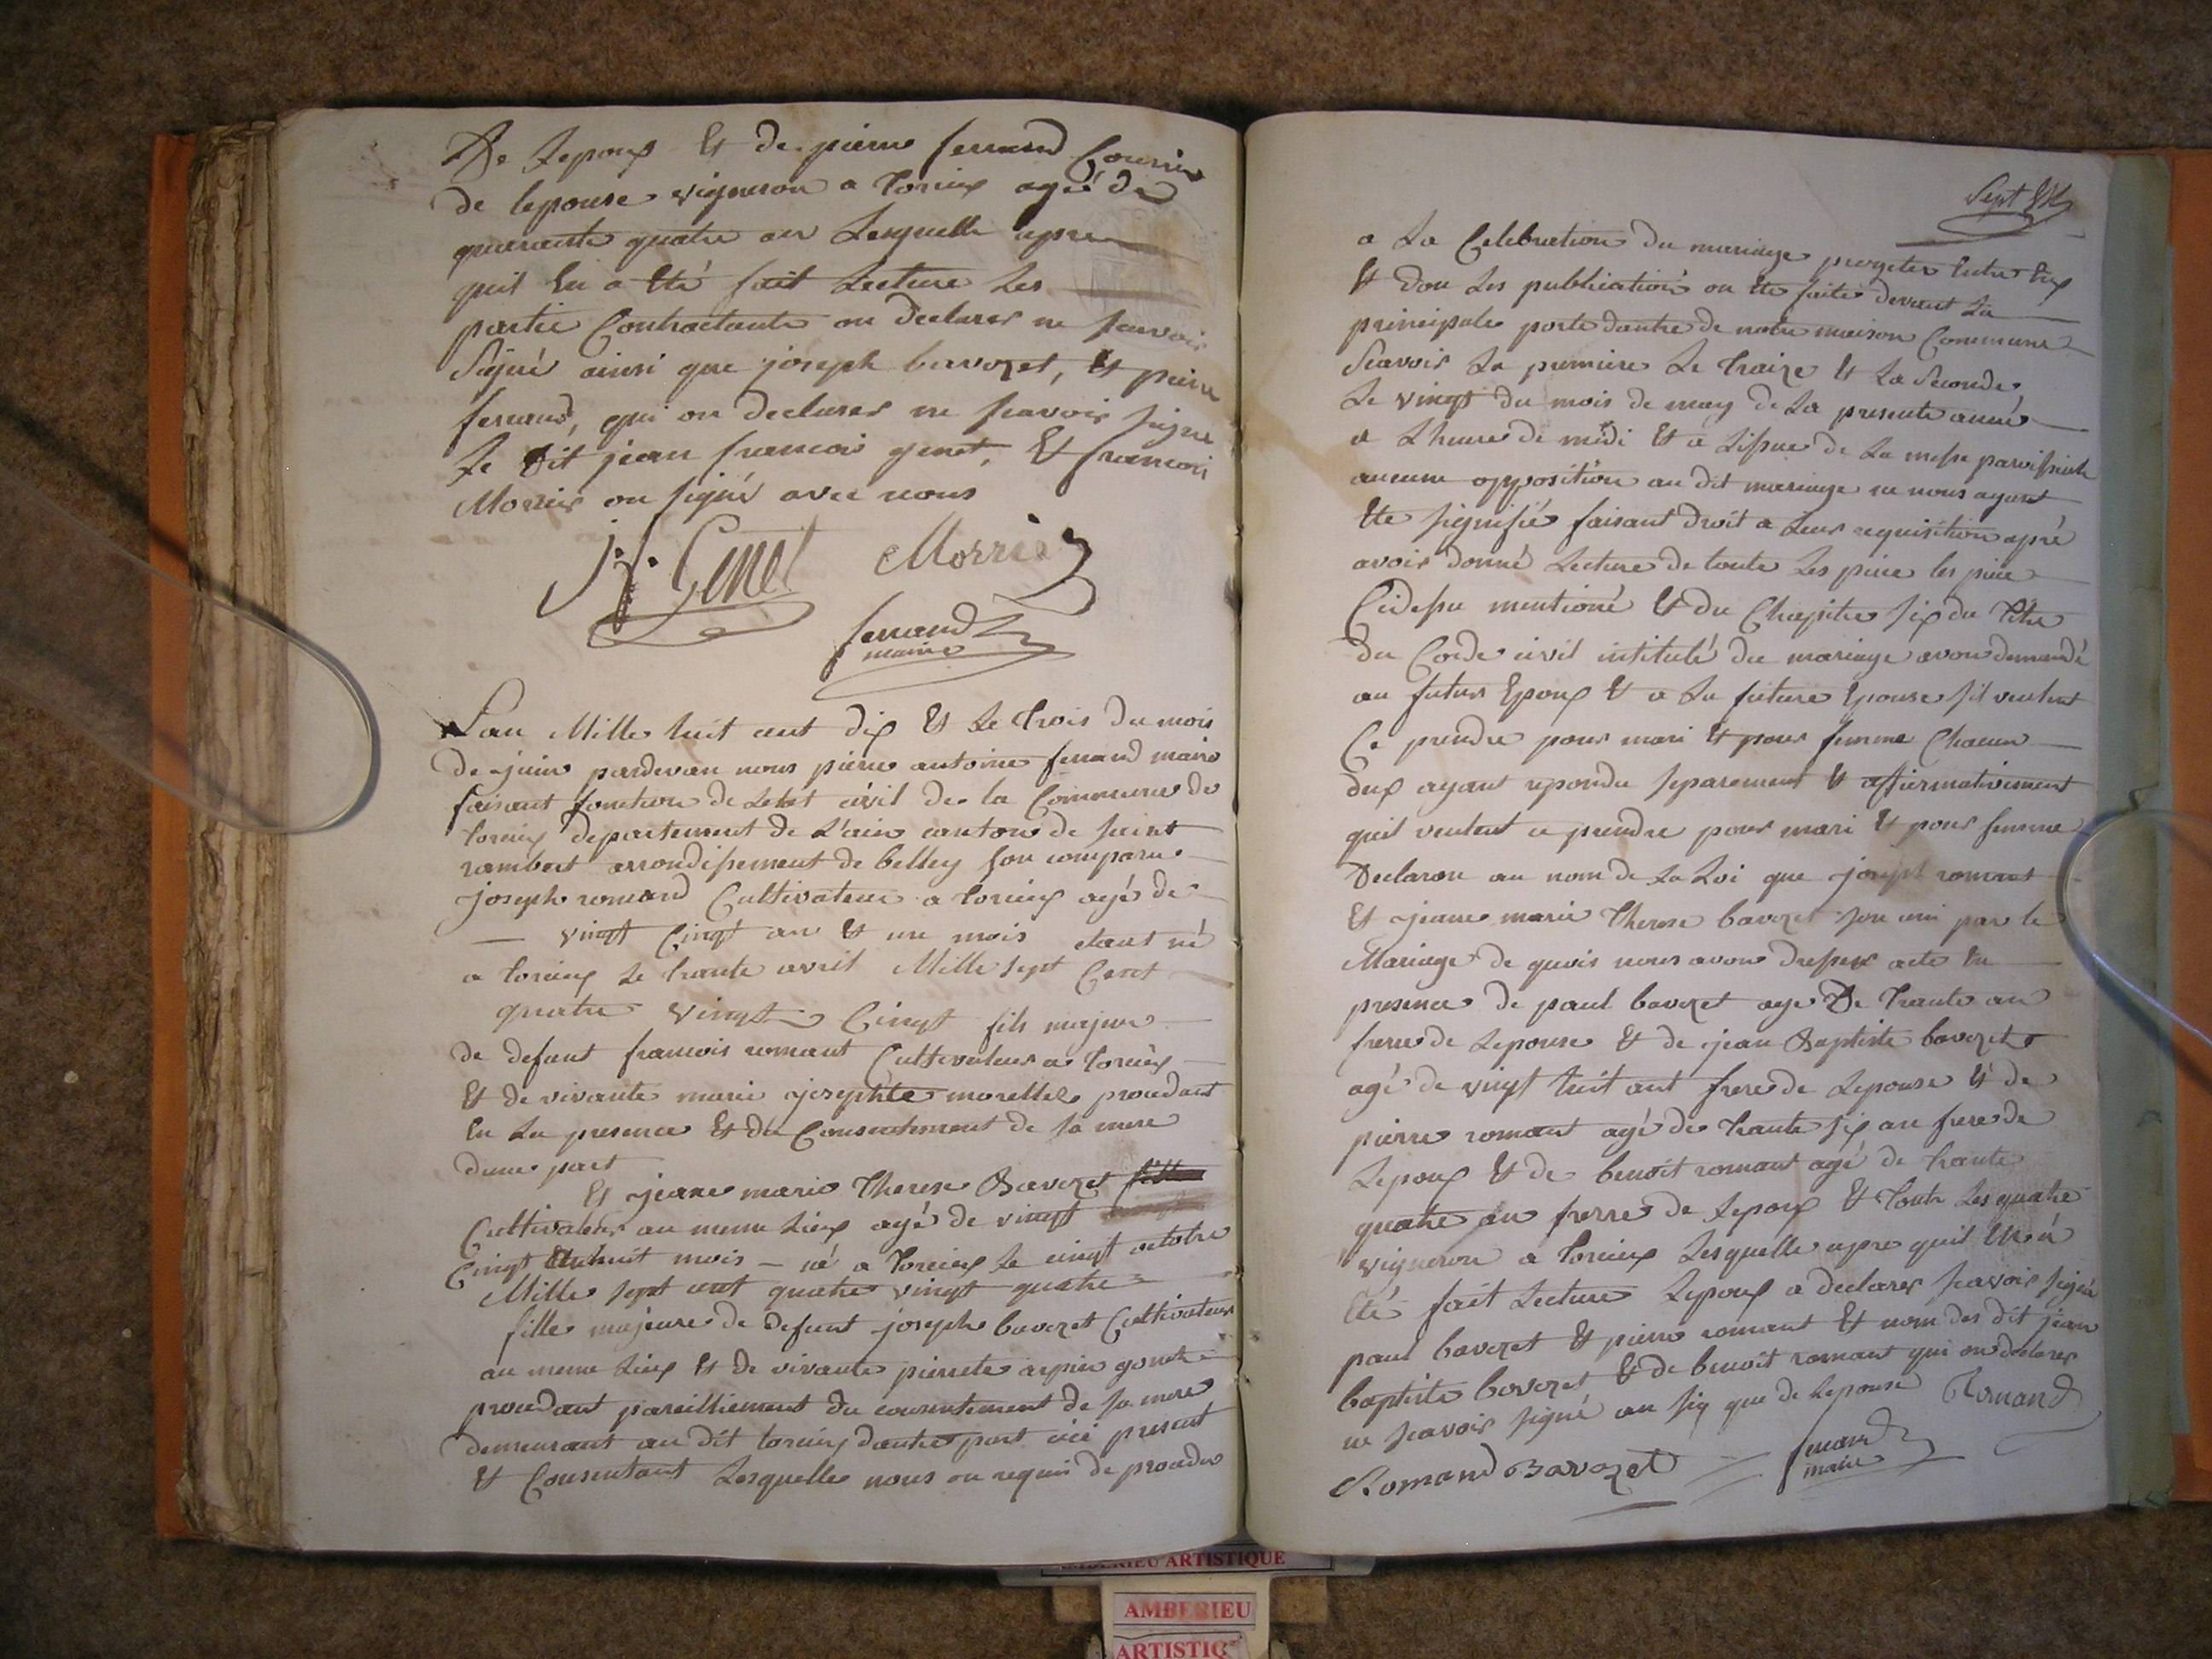 De Lepoux Et de pierre ferrand Cousin
de lepouse vigneron a torcieux agé de
quarante quatre an Lesquelle apre
quil en a Eté fait Lecture Les
partie Contractante on declarer ne scavoir
Signé ainsi que joseph bavozet, Et pierre
ferrand, qui on declarer ne scavoir signe
Le Dit jean francois genet, Et francois
Morrier on signé avec nous
J. f. Genet Morrier
ferrand
maire
Lan Mille huit cent dix Et Le trois du mois
de juin pardevan nous pierre antoine ferrand maire
faisant fonction de Letat civil de la Commune de
torcieux departement de L'ain canton de saint
rambert arrondissement de belley son comparu
joseph romand Cultivateur a torcieux agé de
vingt Cingt an Et un mois etant né
a torcieux Le trante avril Mille sept Cent
quatre vingt Cingt fils majeur
de defunt francois romant Cultivateur a torcieux
Et de vivante marie josephte morellet procedant
En La presence Et du Consentement de sa mere
dune part
Et jeane marie therese Bavozet fille
Cultivateur au meme Lieux agé de vingt
Cingt an huit mois - né a torcieux Le vingt octobre
Mille sept cent quatre vingt quatre
fille majeure de defunt joseph bavozet Cultivateur
au meme Lieux Et de vivante pierrete arpin gonet
procedant pareilliement du consentement de sa mere
demeurant au dit torcieux dautre part ici present
Et Consentant Lesquelle nous on requi de proceder
Sept
a La Celebration du mariage progeter Entre Eux
Et don Les publication on Ete faite devant La
principale porte dantre de notre maison Commune
Scavoir La premiere Le traize Et La Seconde
Le vingt du mois de may de La presente année
a Lheure de midi Et a Lissue de La messe paroissiale
aucune opposition au dit mariage ne nous ayant
Ete signifié faisant droit a Leur requisition apré
avoir donné Lecture de toute Les piece les piece
Cidessu mentioné Et du Chapitre six du titre
du Code civil intitulé du mariage avon demandé
au futur Epoux Et a La future Epouse sil veulent
Ce prendre pour mari Et pour femme Chacun
deux ayant repondu separement Et affiermativement
quil veulent ce prendre pour mari Et pour femme
Declaron au nom de La Loi que joseph romant
Et jeane marie therese bavozet son uni par le
Mariage de quois nous avon dresser acte En
presence de paul bavozet age De trante an
frere de Lepouse Et de jean Baptiste bavozet
agé de vingt huit ant frere de Lepouse Et de
pierre romant agé de trante six an frere de
Lepoux Et de benoit romant agé de trante
quatre an frerre de Lepoux Et toute Les quatre
vigneron a torcieux Lesquelle apre quil En a
Eté fait Lecture Lepoux a declarer scavoir signé
paul bavozet Et pierre romant Et non des dit jean
baptiste bavozet Et de benoit romant qui on declarer
ne scavoir signé an sig que de Lepouse Romand
Romand Bavozet ferrand
maire
AMBERIEU ARTISTIQUE
AMBERIEU
ARTISTIQ